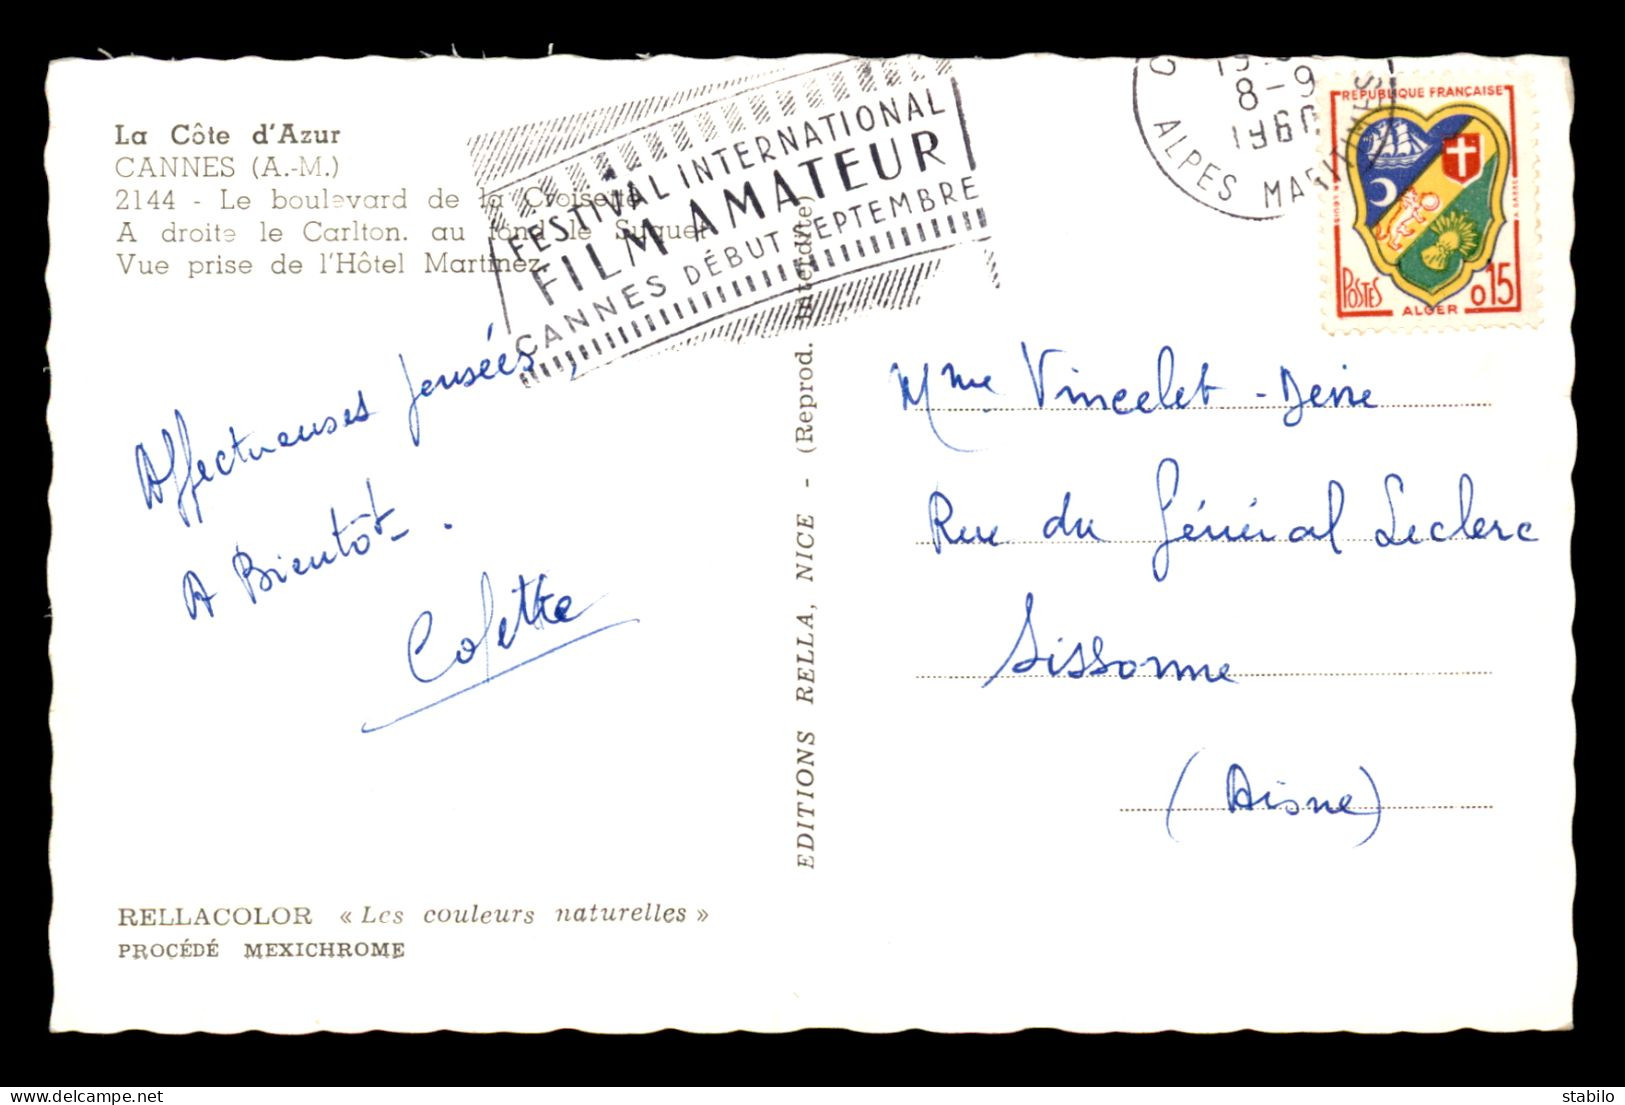 La Côte d'Azur
CANNES (A.-M.)
2144 - Le boulevard de la Croisette
A droite le Carlton. au fond le Suquet
Vue prise de l'Hôtel Martinez.
FESTIVAL INTERNATIONAL
FILM AMATEUR
CANNES DÉBUT SEPTEMBRE
8-9
1960
ALPES MARITIMES
REPUBLIQUE FRANÇAISE
POSTES
0,15
ALGER
Affectueuses pensées
A Bientôt.
Colette
EDITIONS RELLA, NICE - (Reprod. interdite)
Mme Vincelet-
Rue du Général Leclerc
Sissonne
(Aisne)
RELLACOLOR « Les couleurs naturelles »
PROCÉDÉ MEXICHROME
stabilo | delcampe.net